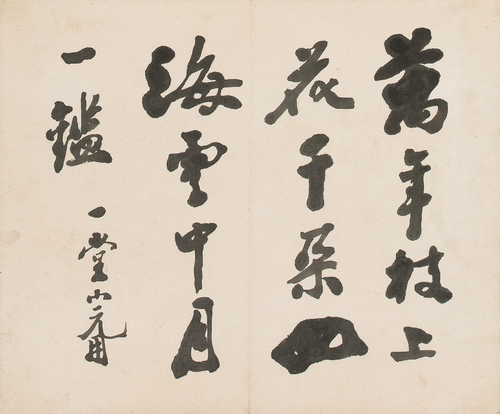 萬年枝上
花千朵四
海雲中月
一鑑
一堂